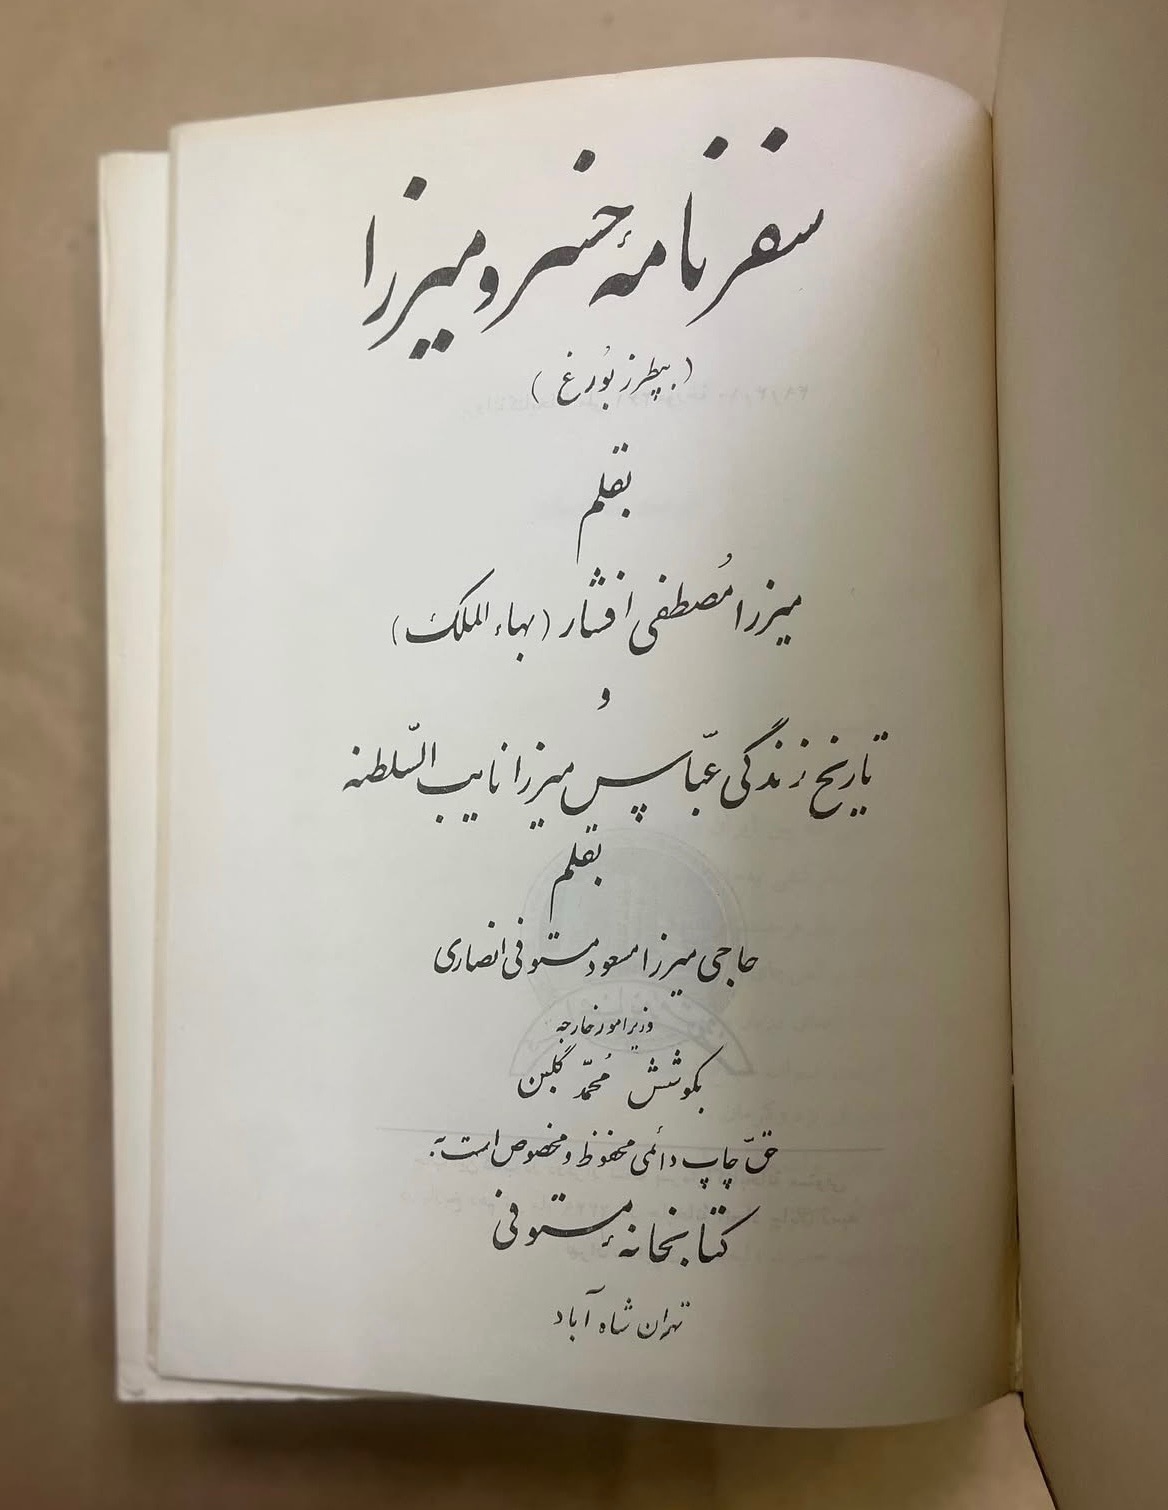 سفرنامهٔ خسرو میرزا
(بپطرزبُورغ)
بقلم
میرزا مُصطفی افشار (بهاء الملک)
و
تاریخ زندگی عبّاس میرزا نایب السّلطنه
بقلم
حاجی میرزا مسعود مستوفی انصاری
وزیر امور خارجه
بکوشش مُحمّد گلبن
حقّ چاپ دائمی محفوظ و مخصوص است به:
کتابخانهٔ مستوفی
تهران شاه آباد